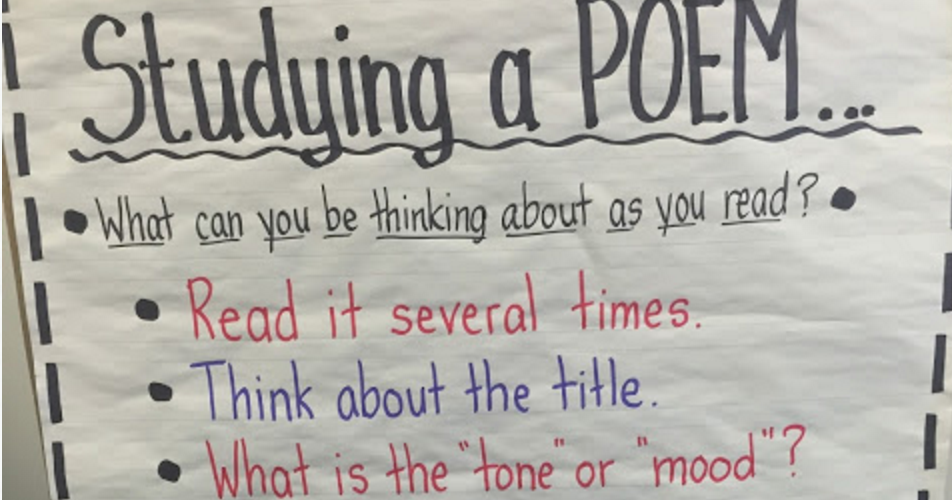 Studying a POEM...
• What can you be thinking about as you read? •
• Read it several times.
• Think about the title.
• What is the "tone" or "mood"?